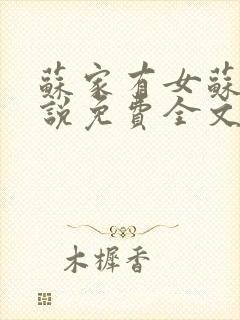 蘇家有女蘇
說免費全文
木樨香